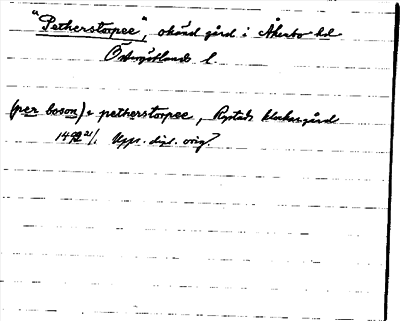 "Petherstorpee", okänd gård i Åkerbo hd
Östergötlands l.
(per boson) i petherstorpee, Rystads klockargård
1492 21/1 Upps. dipl. orig.